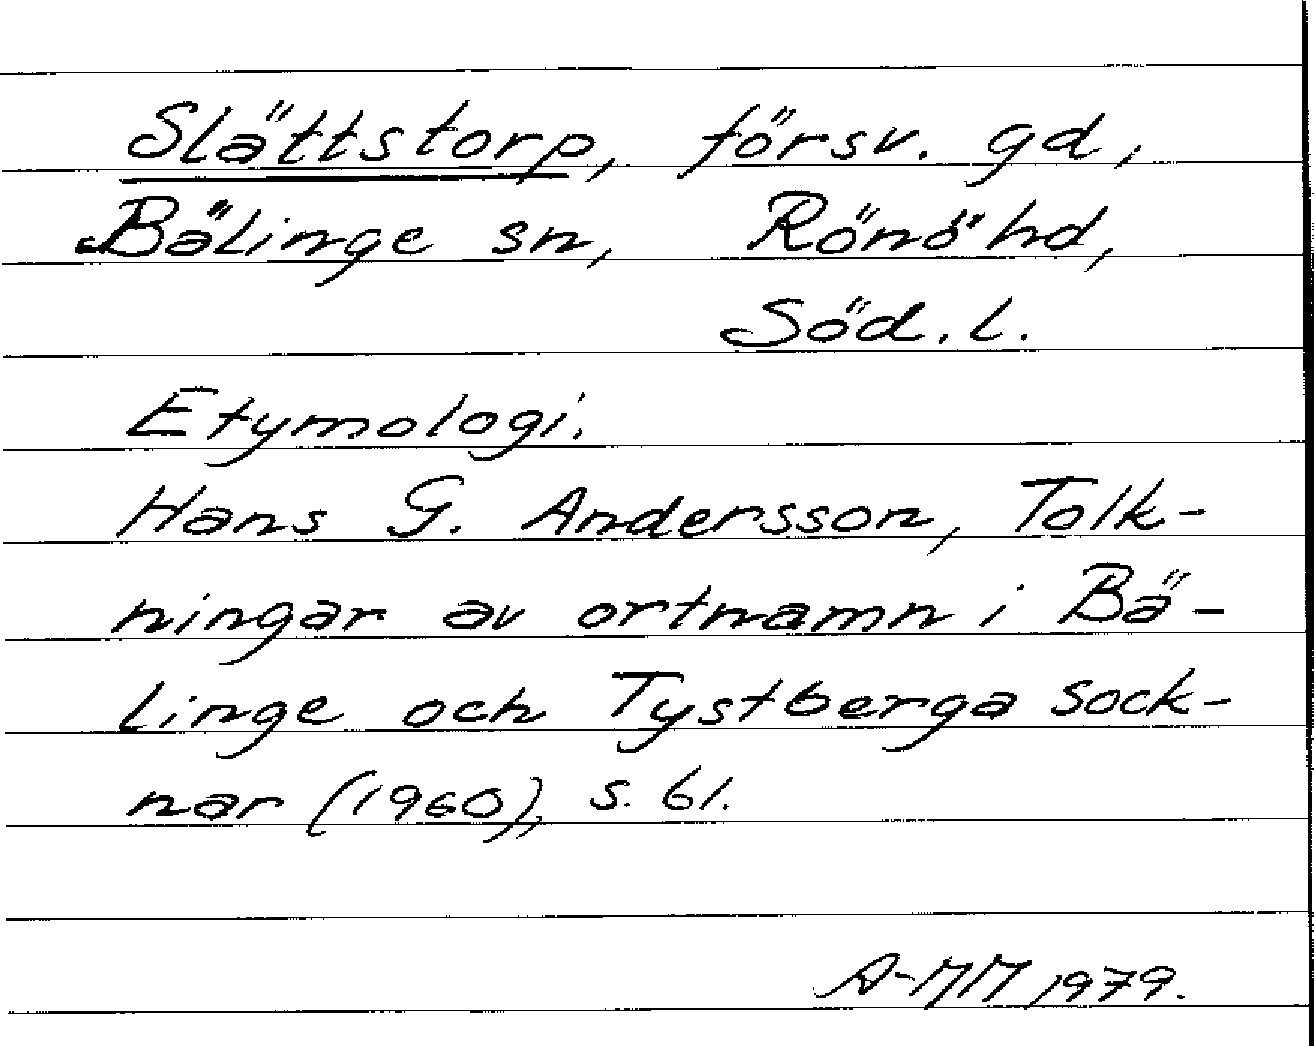 Slättstorp, försv. gd,
Bälinge sn, Rönö hd,
Söd. l.
Etymologi.
Hans G. Andersson, Tolk-
ningar av ortnamn i Bä-
linge och Tystberga sock-
nar (1960), s. 61.
A-MM 1979.